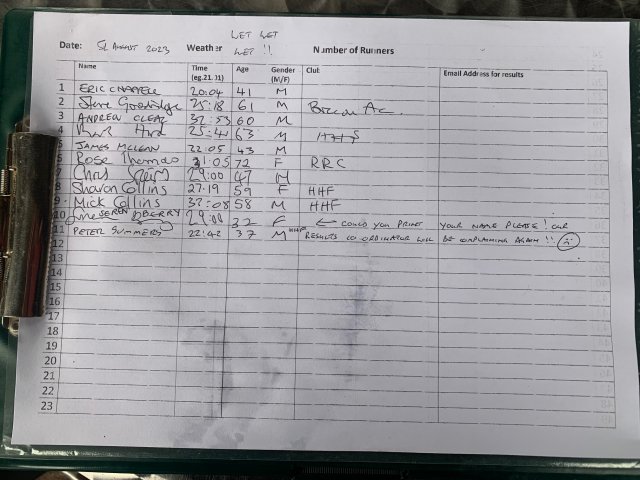 WET WET
Date: 5th AUGUST 2023 Weather WET !! Number of Runners
Name Time (eg.21.31) Age Gender (M/F) Club Email Address for results
1 ERIC CHAPPELL 20:04 41 M
2 Steve 25:18 61 M
3 ANDREW CLEAL 32:53 60 M
4 25:41 63 M
5 JAMES MCLEAN 22:05 43 M
6 Rose Thomas 31:05 72 F RRC
7 Chris 29:00 47 M
8 Sharon Collins 27:19 59 F HHF
9 Mick Collins 32:08 58 M HHF
10 29:00 32 F ← COULD YOU PRINT YOUR NAME PLEASE! OUR
11 PETER SUMMERS 22:42 37 M HHF RESULTS CO ORDINATOR WILL BE COMPLAINING AGAIN!!
12
13
14
15
16
17
18
19
20
21
22
23